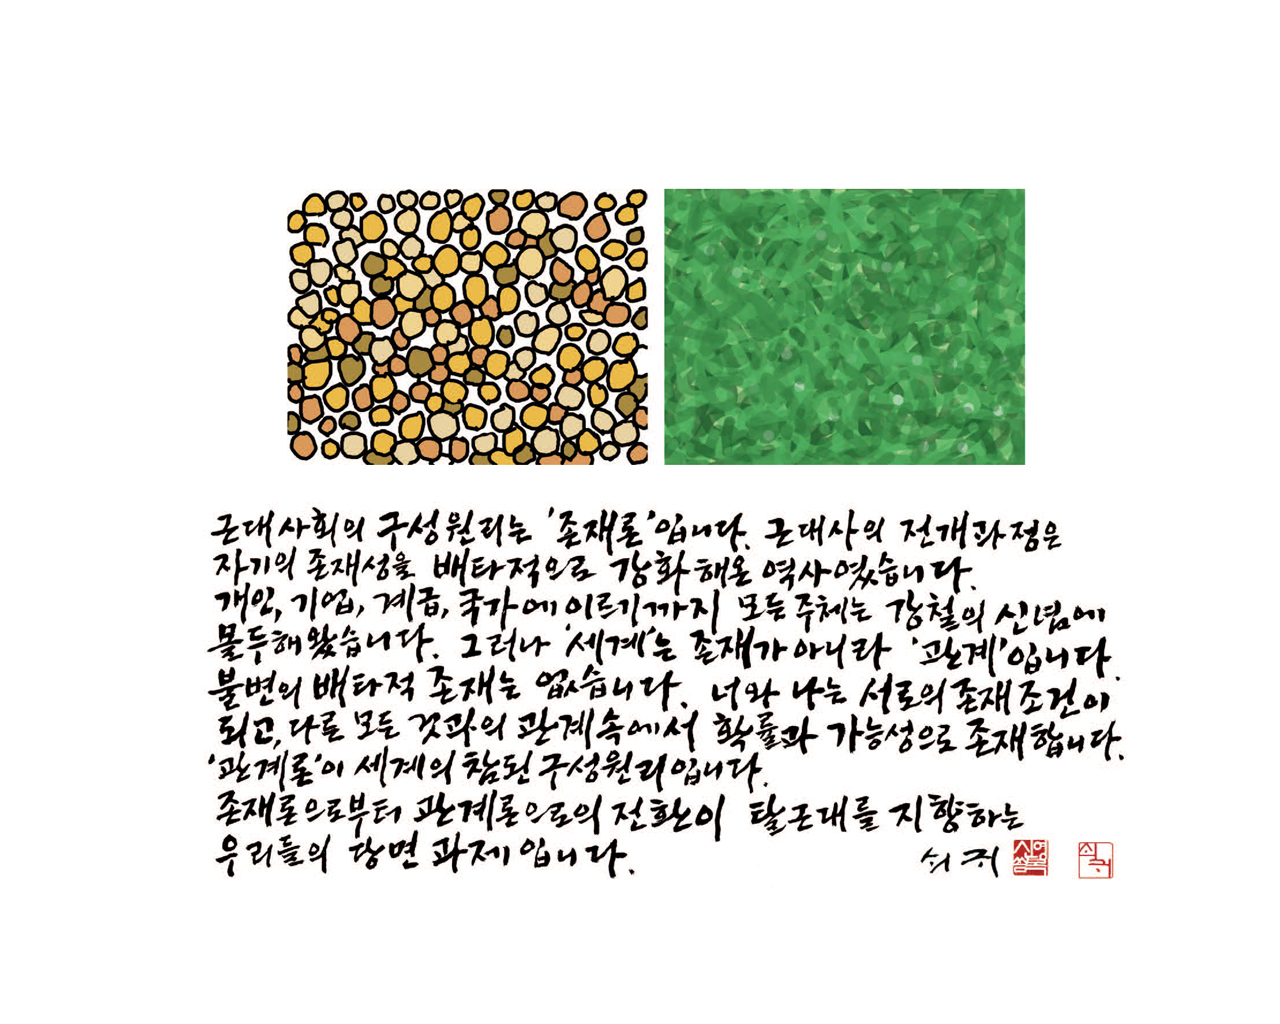 근대사회의 구성원리는 '존재론'입니다. 근대사의 전개과정은
자기의 존재성을 배타적으로 강화해온 역사였습니다.
개인, 기업, 계급, 국가에 이르기까지 모든 주체는 강철의 신념에
몰두해왔습니다. 그러나 '세계'는 존재가 아니라 '관계'입니다.
불변의 배타적 존재는 없습니다. 너와 나는 서로의 존재조건이
되고, 다른 모든 것과의 관계속에서 확률과 가능성으로 존재합니다.
'관계론'이 세계의 참된 구성원리입니다.
존재론으로부터 관계론으로의 전환이 탈근대를 지향하는
우리들의 당면 과제입니다.
쇠귀
쇠귀